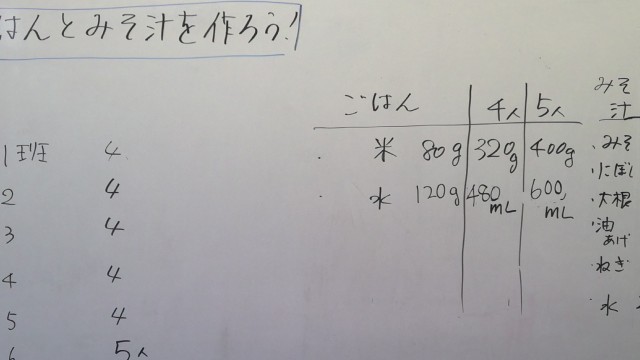 はんとみそ汁を作ろう!
1班 4
2 4
3 4
4 4
5 4
6 5人
ごはん 4人 5人
・米 80g 320g 400g
・水 120g 480mL 600mL
みそ汁
・みそ
・にぼし
・大根
・油あげ
・ねぎ
・水